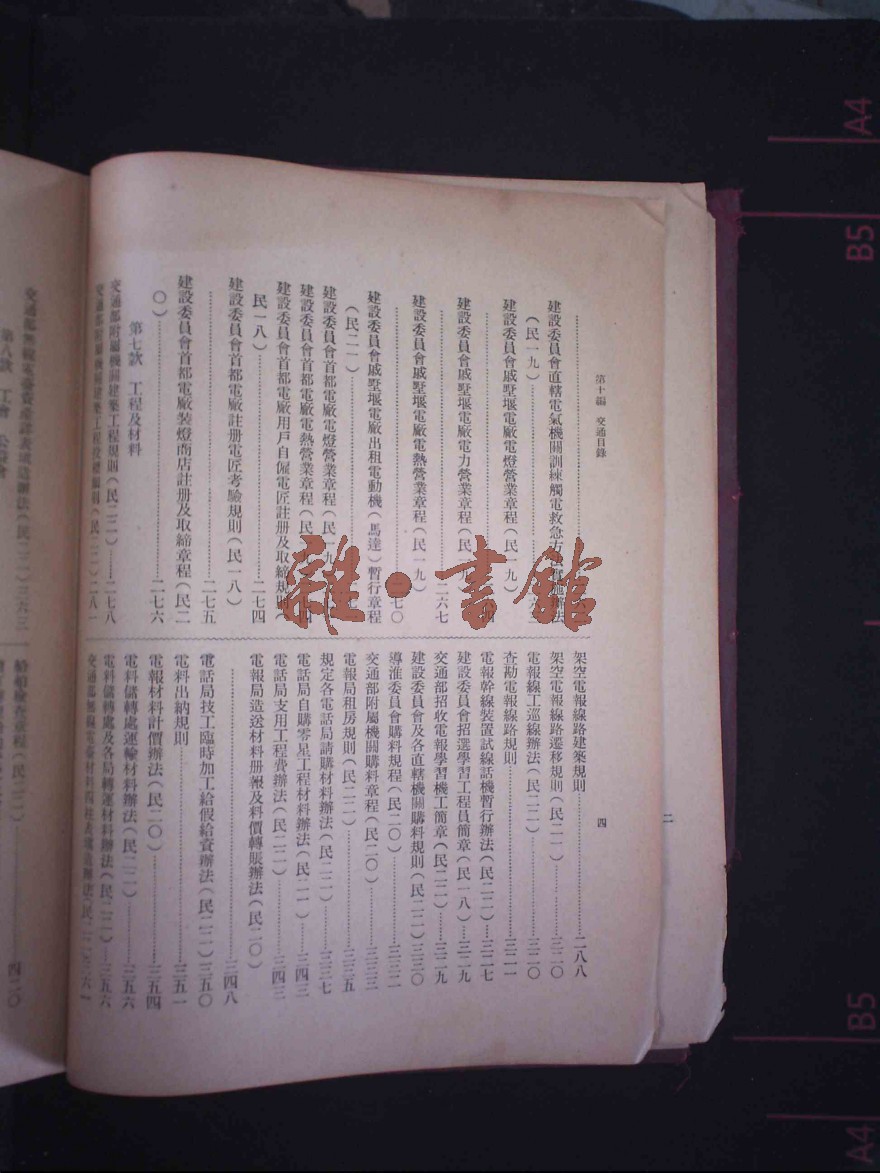 第十編　交通目錄
四
建設委員會直轄電氣機關訓練觸電救急方法實施辦法
（民一九）
建設委員會戚墅堰電廠電燈營業章程（民一九）
建設委員會戚墅堰電廠電力營業章程（民一九）
二六七
建設委員會戚墅堰電廠電熱營業章程（民一九）
二七〇
建設委員會戚墅堰電廠出租電動機（馬達）暫行章程
（民二一）
建設委員會首都電廠電燈營業章程（民一九）
建設委員會首都電廠電熱營業章程（民
建設委員會首都電廠用戶自僱電匠註册及取締規則（
民一八）二七四
建設委員會首都電廠註册電匠考驗規則（民一八）
二七五
建設委員會首都電廠裝燈商店註册及取締章程（民二
〇）二七六
第七款　工程及材料
交通部附屬機關建築工程規則（民二二）二七八
交通部附屬機關建築工程投標細則（民二二）二八一
架空電報線路建築規則二八八
架空電報線路遷移規則（民二一）三二〇
電報線工巡線辦法（民二二）三二〇
查勘電報線路規則三二一
電報幹線裝置試線話機暫行辦法（民二二）三二七
建設委員會招選學習工程員簡章（民一八）三二九
交通部招收電報學習機工簡章（民二二）三二九
建設委員會及各直轄機關購料規則（民二二）三三〇
導淮委員會購料規程（民二〇）三三二
交通部附屬機關購料章程（民二〇）三三三
電報局租房規則（民二二）三三五
規定各電話局請購材料辦法（民二二）三三七
電話局自購零星工程材料辦法（民二一）三四三
電話局支用工程費辦法（民二二）三四三
電報局造送材料册報及料價轉賬辦法（民二〇）
三四八
電話局技工臨時加工給假給資辦法（民二二）三五〇
電料出納規則三五一
電報材料計價辦法（民二〇）三五四
電料儲轉處運輸材料辦法（民二二）三五六
電料儲轉處及各局轉運材料辦法（民二二）三五六
交通部無線電臺材料四柱表填造辦法（民二二）三六一
雜·書館
二
A4
B5
B5
A4